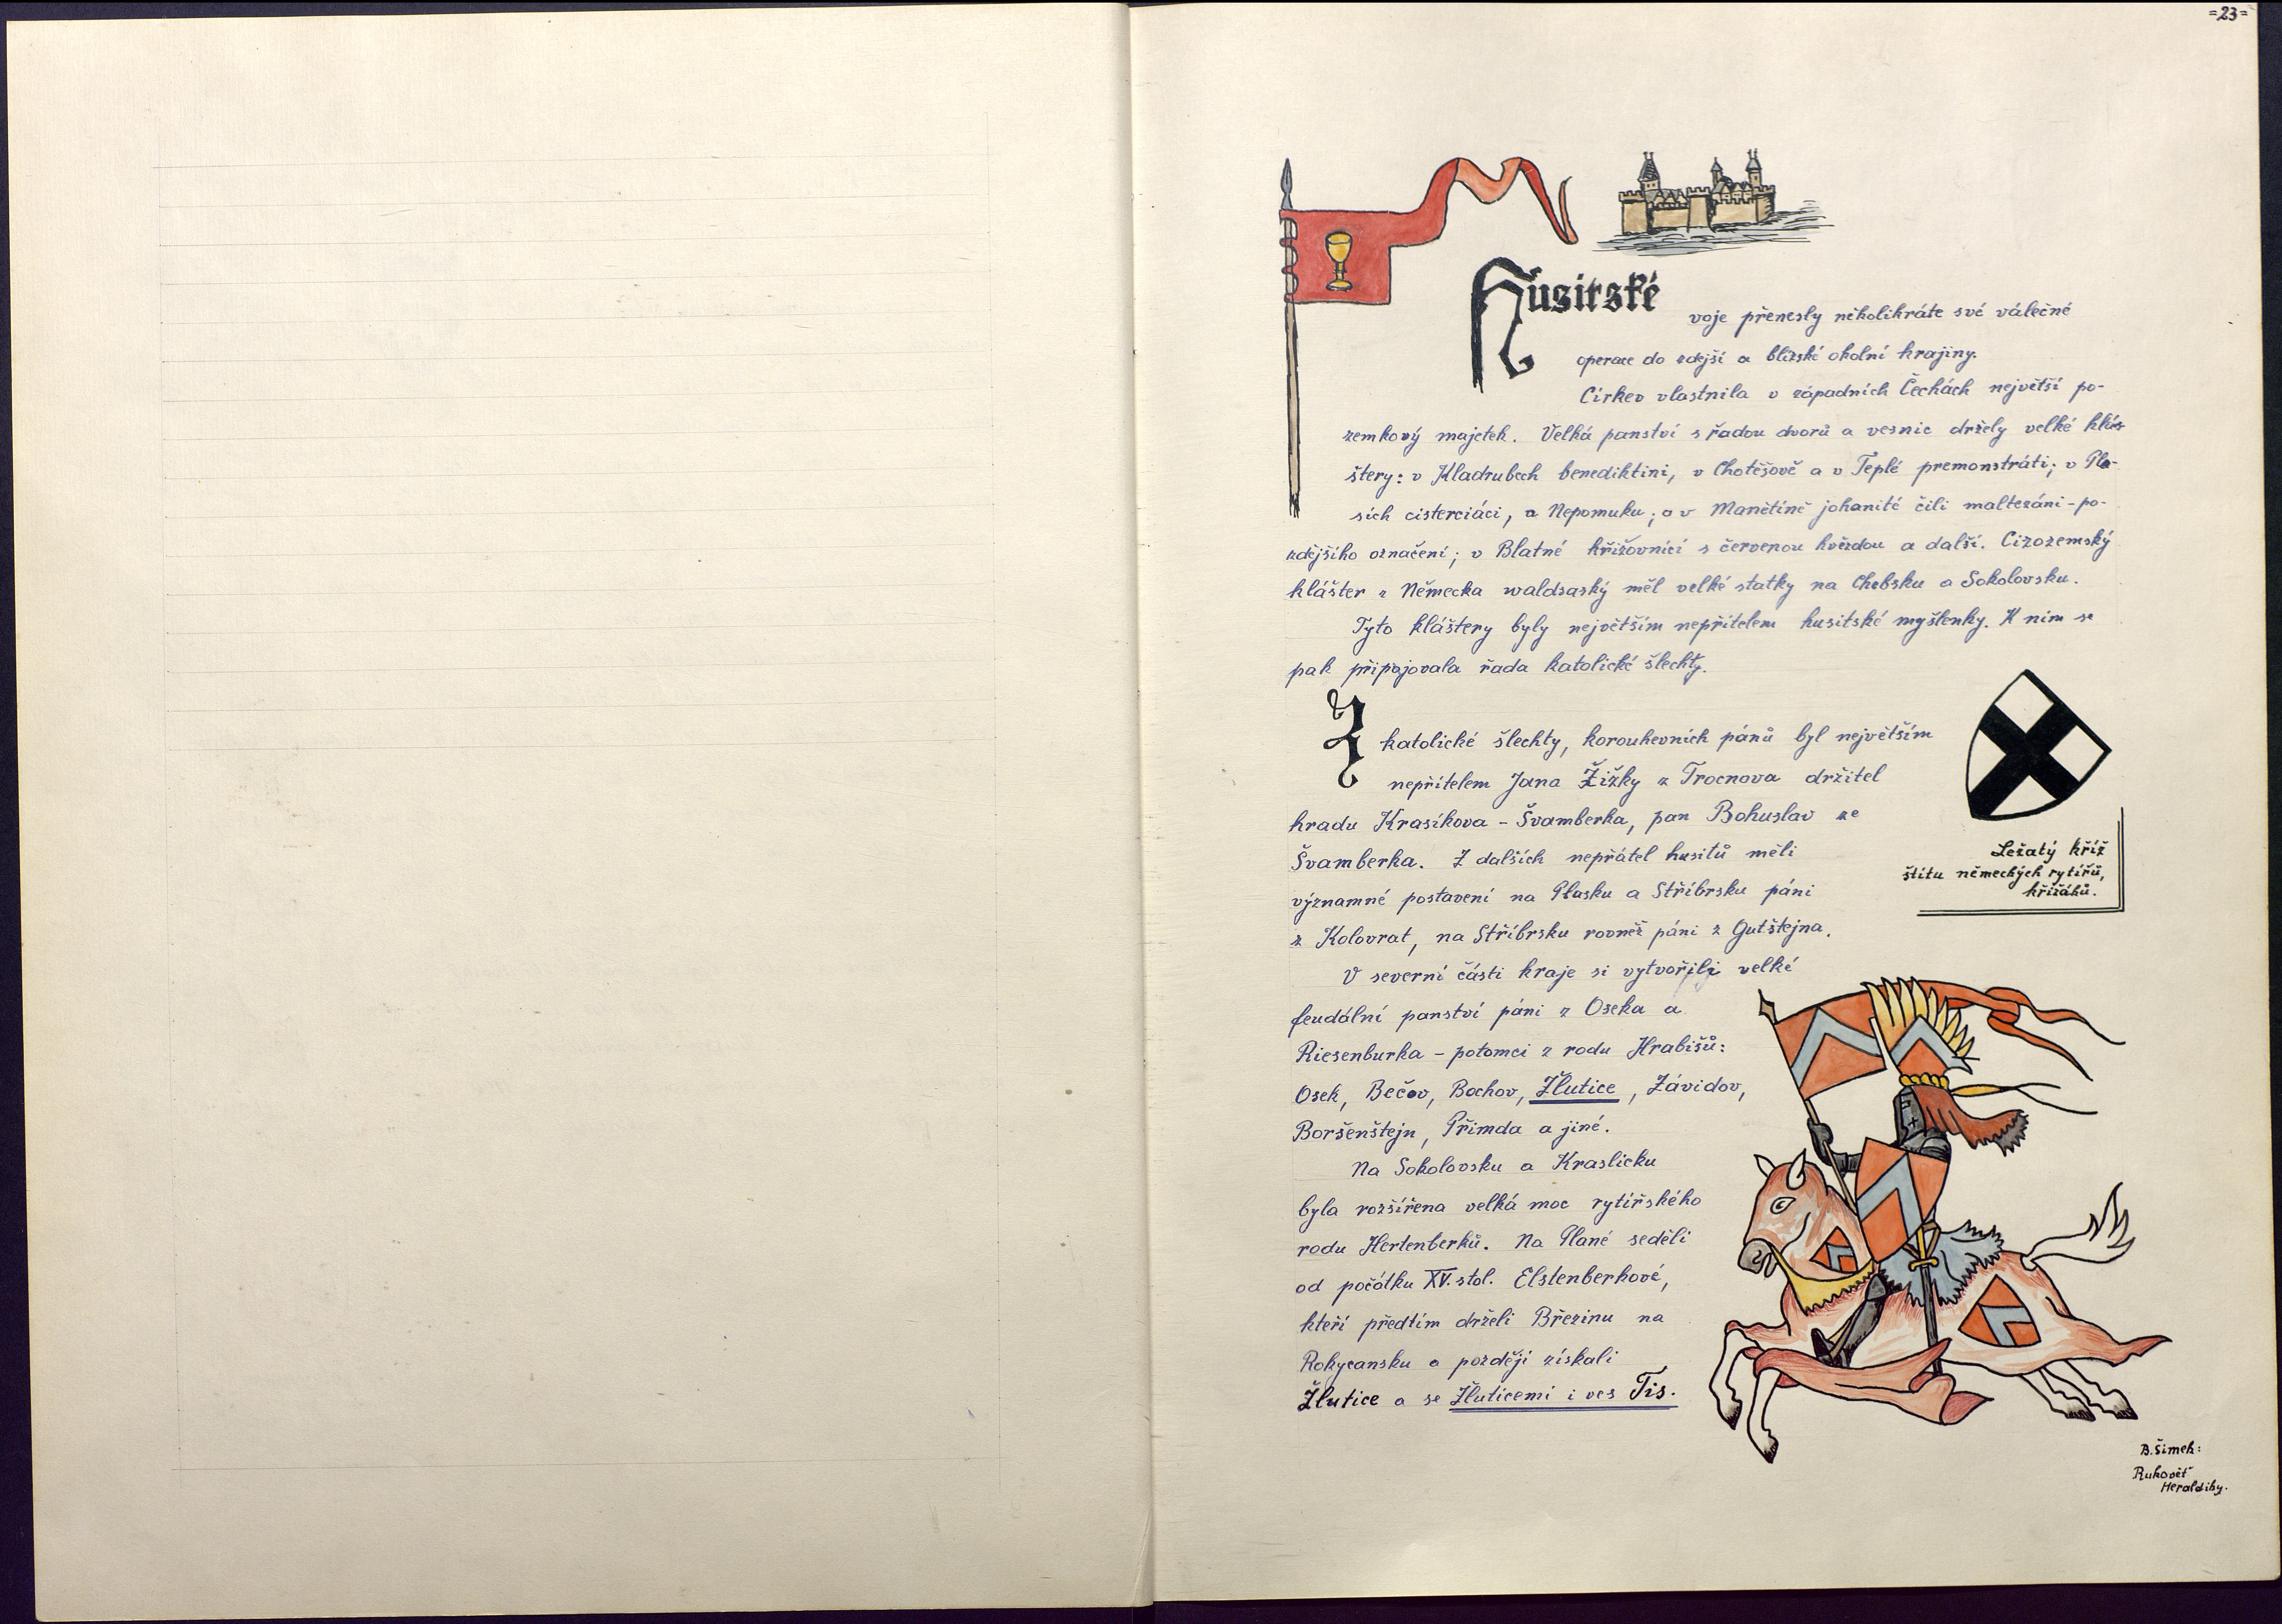 =23=
Husitské
voje přenesly několikráte své válečné
operace do zdejší a blízké okolní krajiny.
Církev vlastnila v západních Čechách největší po-
zemkový majetek. Velká panství s řadou dvorů a vesnic držely velké klá-
štery: v Kladrubech benediktini, v Chotěšově a v Teplé premonstráti; v Pla-
sích cisterciáci, a Nepomuku; a v Manětíně johanité čili maltezáni - po-
zdějšího označení; v Blatné křižovníci s červenou hvězdou a další. Cizozemský
klášter z Německa waldsaský měl velké statky na Chebsku a Sokolovsku.
Tyto kláštery byly největším nepřítelem husitské myšlenky. K nim se
pak připojovala řada katolické šlechty.
Z katolické šlechty, korouhevních pánů byl největším
nepřítelem Jana Žižky z Trocnova držitel
hradu Krasíkova - Švamberka, pan Bohuslav ze
Švamberka. Z dalších nepřátel husitů měli
významné postavení na Plasku a Stříbrsku páni
z Kolovrat, na Stříbrsku rovněž páni z Gutštejna.
V severní části kraje si vytvořili velké
feudální panství páni z Oseka a
Riesenburka - potomci z rodu Hrabišů:
Osek, Bečov, Bochov, Žlutice, Závidov,
Boršenštejn, Přimda a jiné.
Na Sokolovsku a Kraslicku
byla rozšířena velká moc rytířského
rodu Hertenberků. Na Plané seděli
od počátku XV. stol. Elstenberkové,
kteří předtím drželi Březinu na
Rokycansku a později získali
Žlutice a se Žluticemi i ves Tis.
Ležatý kříž
štítu německých rytířů,
křižáků.
B. Šimek:
Rukověť
Heraldiky.